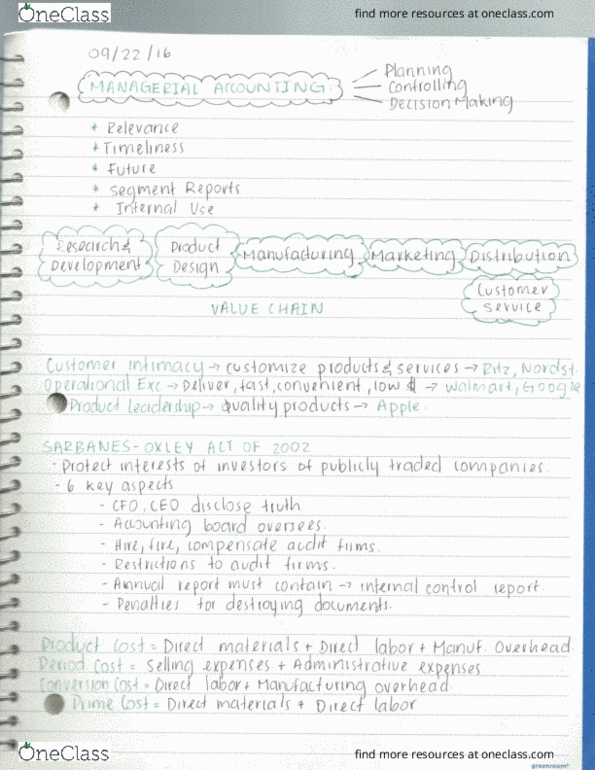 OneClass
find more resources at oneclass.com
09/22/16
MANAGERIAL ACCOUNTING
Planning
Controlling
Decision Making
+ Relevance
+ Timeliness
+ Future
+ Segment Reports
+ Internal Use
Research & Development
Product Design
Manufacturing
Marketing
Distribution
Customer Service
VALUE CHAIN
Customer intimacy → customize products & services → Ritz, Nordst.
Operational Exc → Deliver, fast, convenient, low $ → Walmart, Google
Product leadership → quality products → Apple.
SARBANES-OXLEY ACT OF 2002
- Protect interests of investors of publicly traded companies.
- 6 key aspects
- CFO, CEO disclose truth
- Accounting board oversees.
- Hire, fire, compensate audit firms.
- Restrictions to audit firms.
- Annual report must contain → internal control report.
- Penalties for destroying documents.
Product Cost = Direct materials + Direct labor + Manuf. Overhead
Period Cost = Selling expenses + Administrative expenses
Conversion Cost = Direct labor + Manufacturing overhead.
Prime Cost = Direct materials + Direct labor
greenroom
OneClass
find more resources at oneclass.com